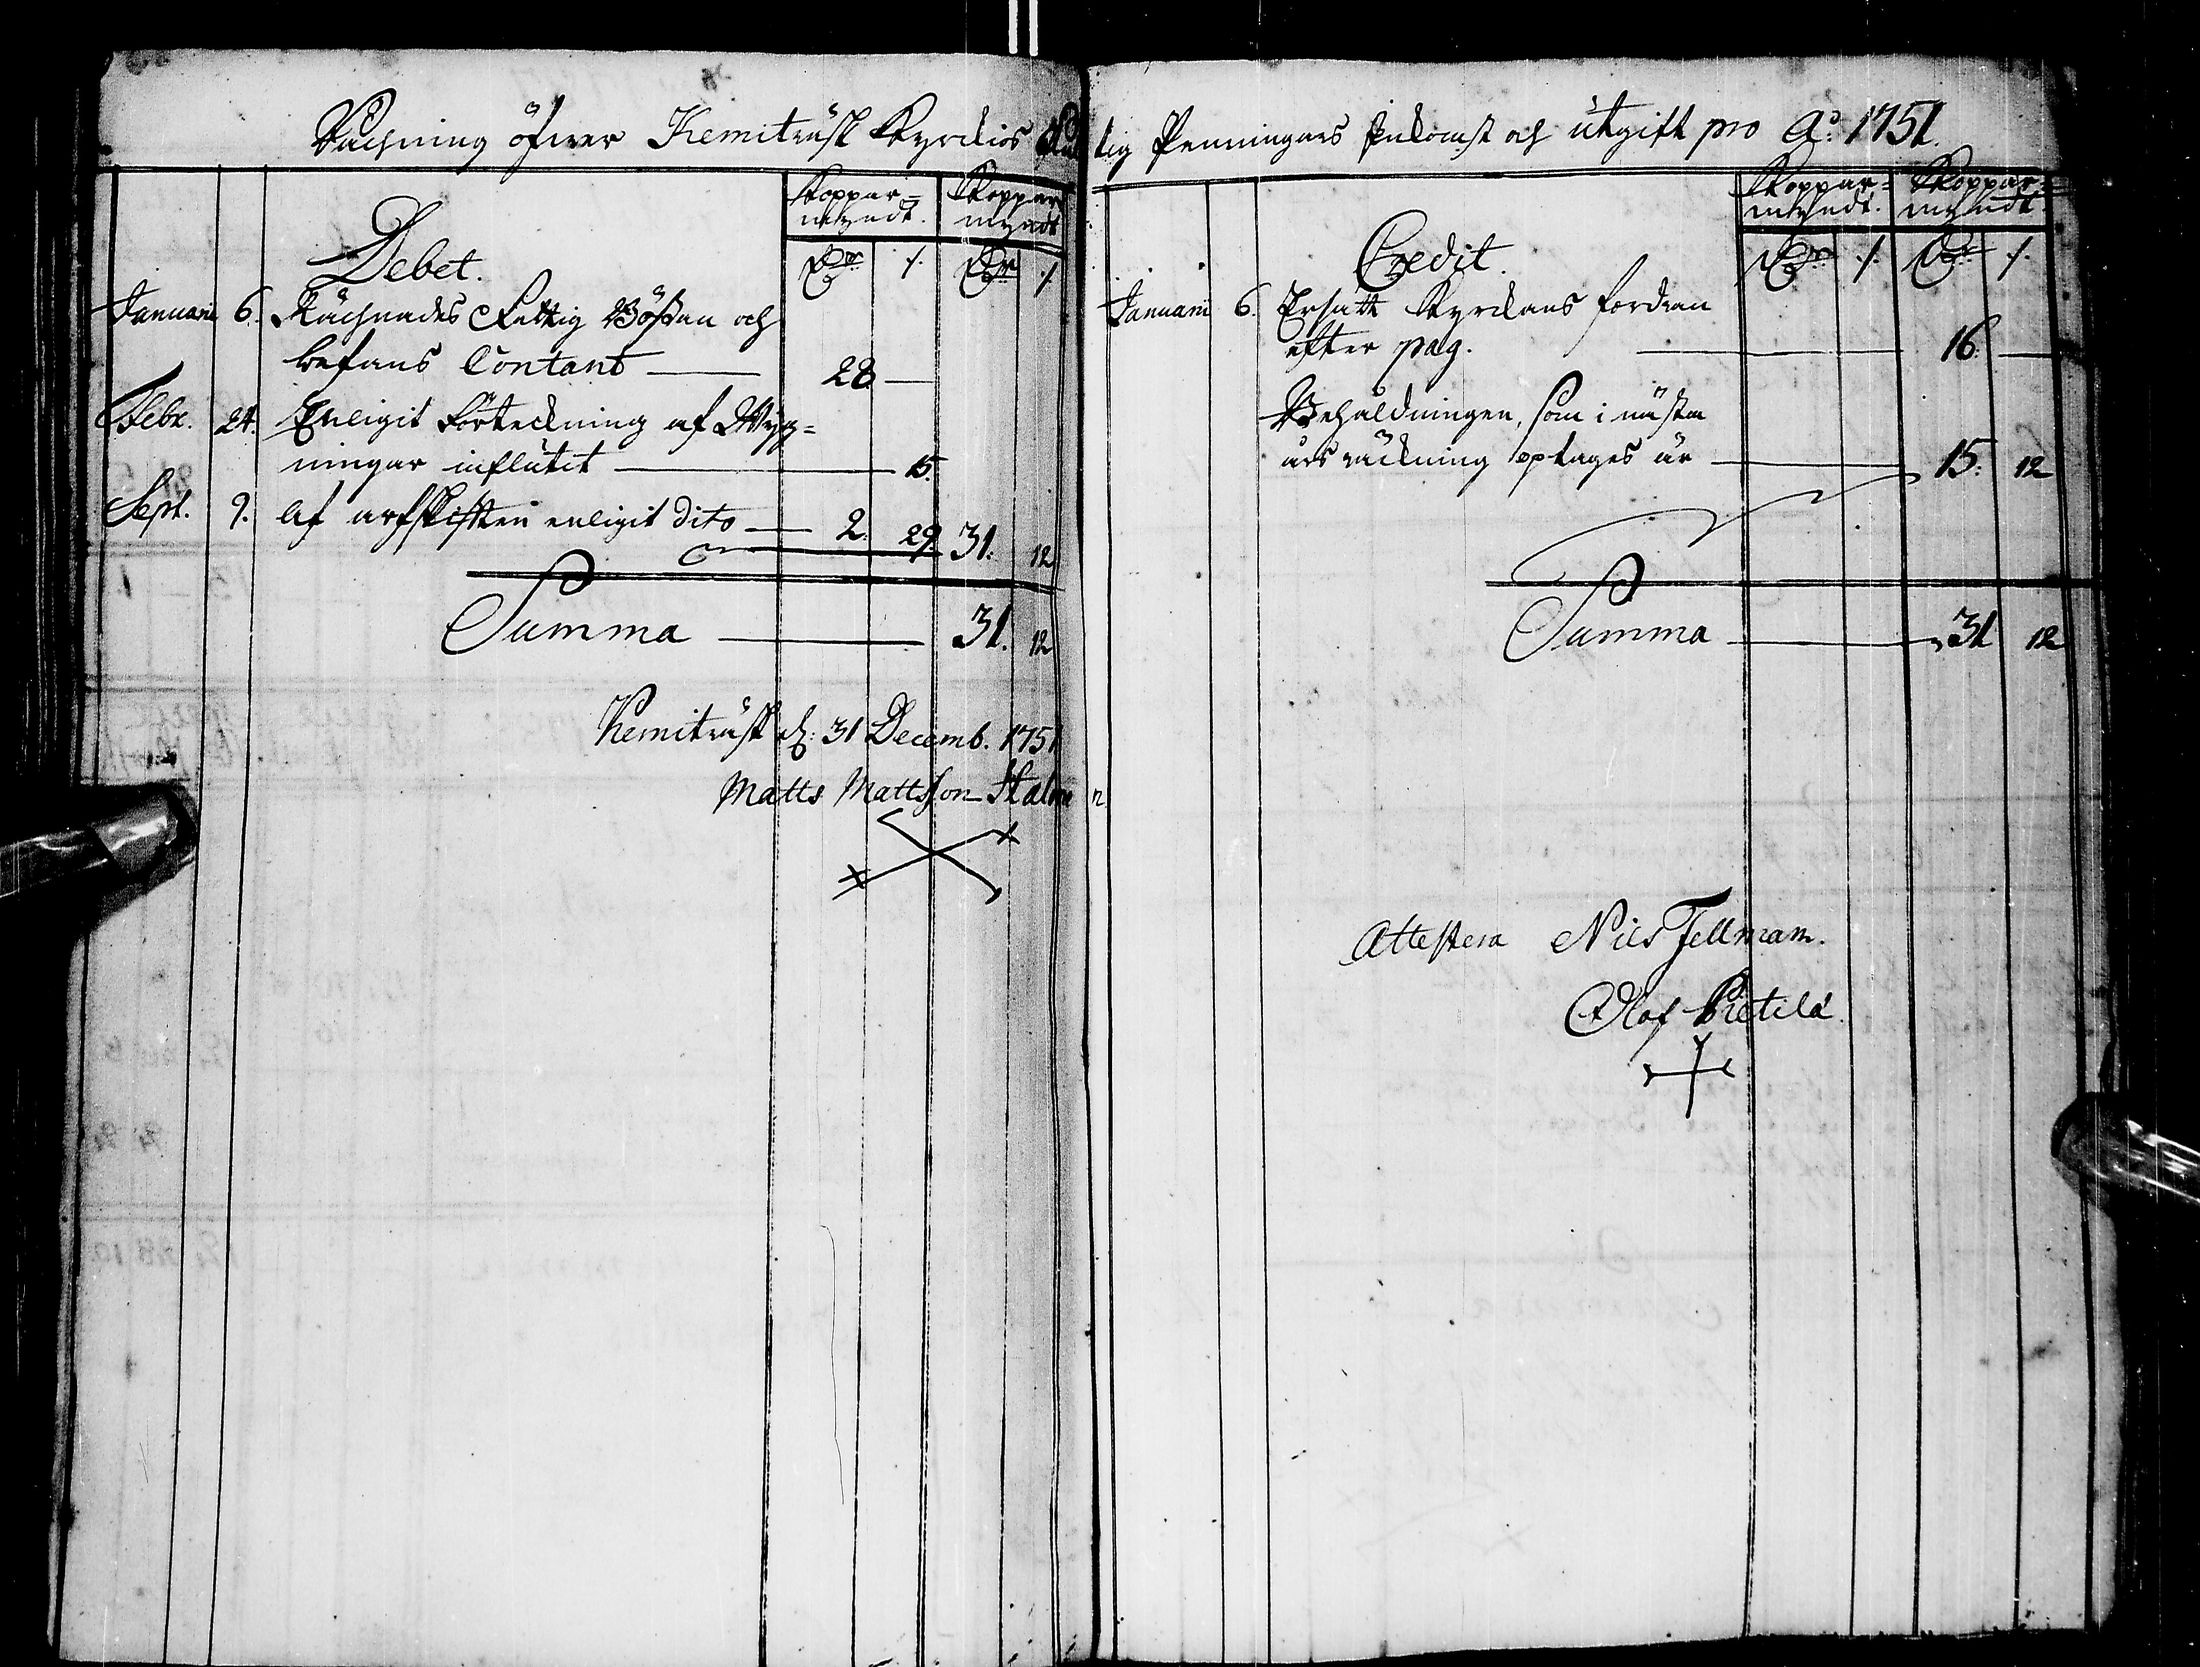 Rächning öfwer Kemiträsk Kyrckios Fattig Penningars Inkomst och utgift pro Ao: 1751.
Koppar= Koppar
myndt. myndt
Debet.
Dr ./. Dr ./.
Januarii 6. Rächnades Fattig Bössan och
befans Contant — 28 —
Febr. 24. Enligit förteckning af Wig=
ningar influtit — 15.
Sept. 9. Af arfskiften enligit dito — 2. 29. 31. 12
Summa — 31. 12
Kemiträsk d: 31 Decemb. 1751
Matts Mattsson Halonen
Koppar= Koppar=
myndt. myndt
Credit.
Dr ./. Dr ./.
Januarii 6. Ersatt Kyrckans fordran
efter pag. — 16. —
Behåldningen, som i nästa
års räckning optages är — 15. 12
Summa — 31 12
Attestera Nils Fellmam.
Olof Pietilä.